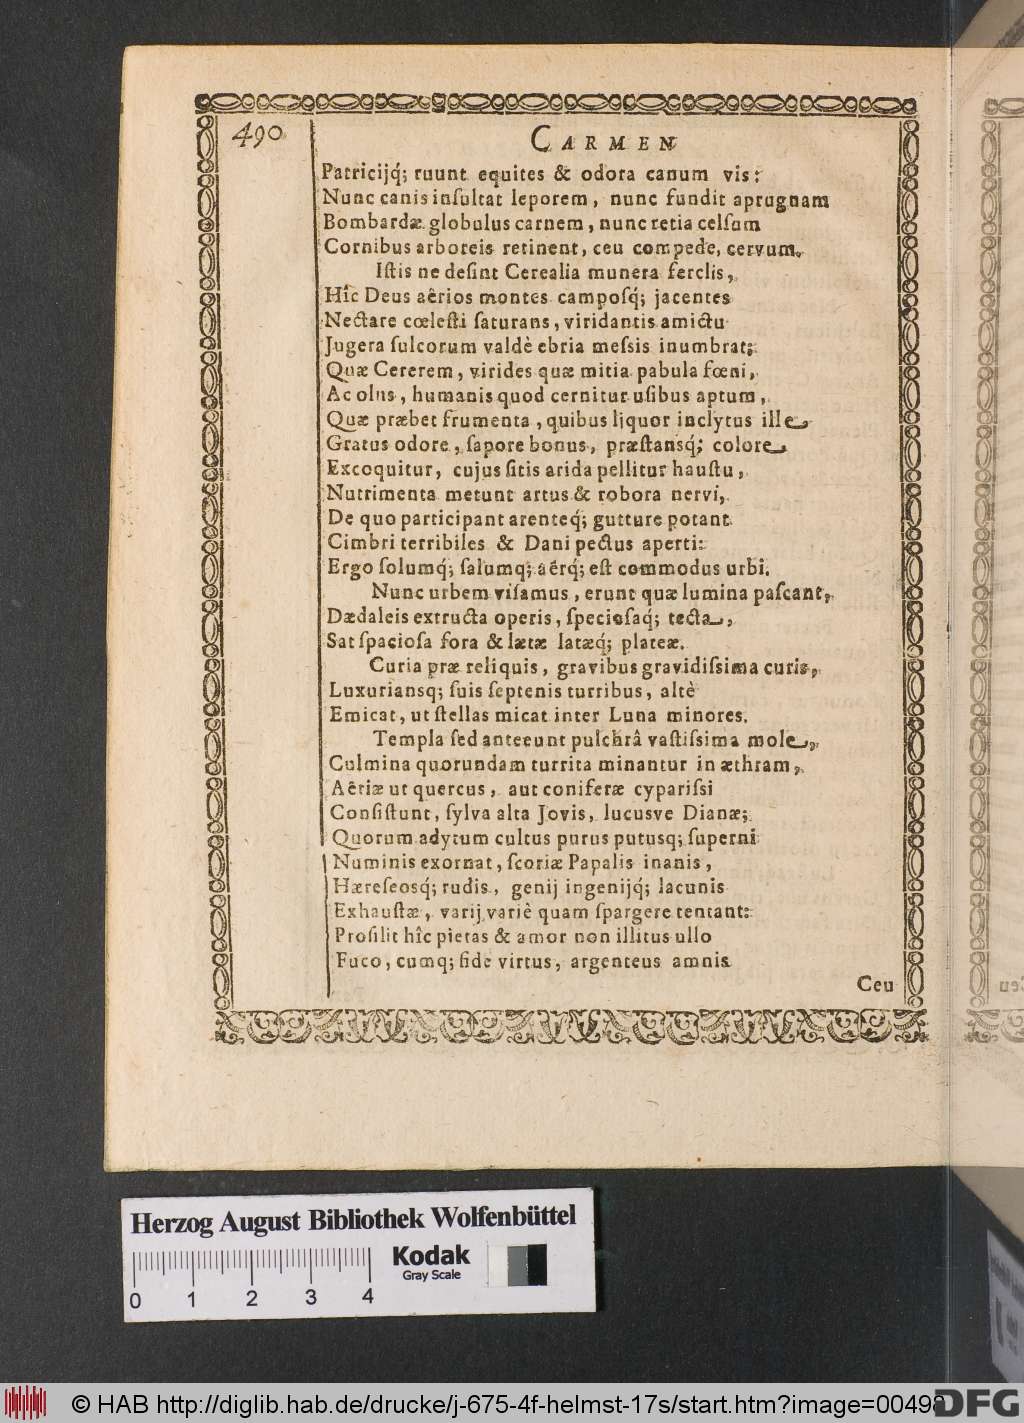 490
CARMEN
Patricijq́; ruunt equites & odora canum vis:
Nunc canis inſultat leporem, nunc fundit aprugnam
Bombardæ globulus carnem, nunc retia celſum
Cornibus arboreis retinent, ceu compede, cervum.
Iſtis ne deſint Cerealia munera ferclis,
Hîc Deus aêrios montes campoſq́; jacentes
Nectare cœleſti ſaturans, viridantis amictu
Jugera ſulcorum valdè ebria meſsis inumbrat;
Quæ Cererem, virides quæ mitia pabula fœni,
Ac olus, humanis quod cernitur uſibus aptum,
Quæ præbet frumenta, quibus liquor inclytus ille
Gratus odore, ſapore bonus, præſtansq́; colore
Excoquitur, cujus ſitis arida pellitur hauſtu,
Nutrimenta metunt artus & robora nervi,
De quo participant arenteq́; gutture potant
Cimbri terribiles & Dani pectus aperti:
Ergo ſolumq́; ſalumq́; aêrq́; eſt commodus urbi.
Nunc urbem viſamus, erunt quæ lumina paſcant,
Dædaleis extructa operis, ſpecioſaq́; tecta,
Sat ſpacioſa fora & lætæ latæq́; plateæ.
Curia præ reliquis, gravibus gravidiſsima curis,
Luxuriansq; ſuis ſeptenis turribus, altè
Emicat, ut ſtellas micat inter Luna minores.
Templa ſed anteeunt pulchrâ vaſtiſsima mole,
Culmina quorundam turrita minantur in æthram,
Aêriæ ut quercus, aut coniferæ cypariſsi
Conſiſtunt, ſylva alta Jovis, lucusve Dianæ;
Quorum adytum cultus purus putusq; ſuperni
Numinis exornat, ſcoriæ Papalis inanis,
Hæreſeosq́; rudis, genij ingenijq́; lacunis
Exhauſtæ, varij variè quam ſpargere tentant:
Proſilit hîc pietas & amor non illitus ullo
Fuco, cumq; fide virtus, argenteus amnis
Ceu
Herzog August Bibliothek Wolfenbüttel
Kodak
Gray Scale
0 1 2 3 4
© HAB http://diglib.hab.de/drucke/j-675-4f-helmst-17s/start.htm?image=00498
DFG